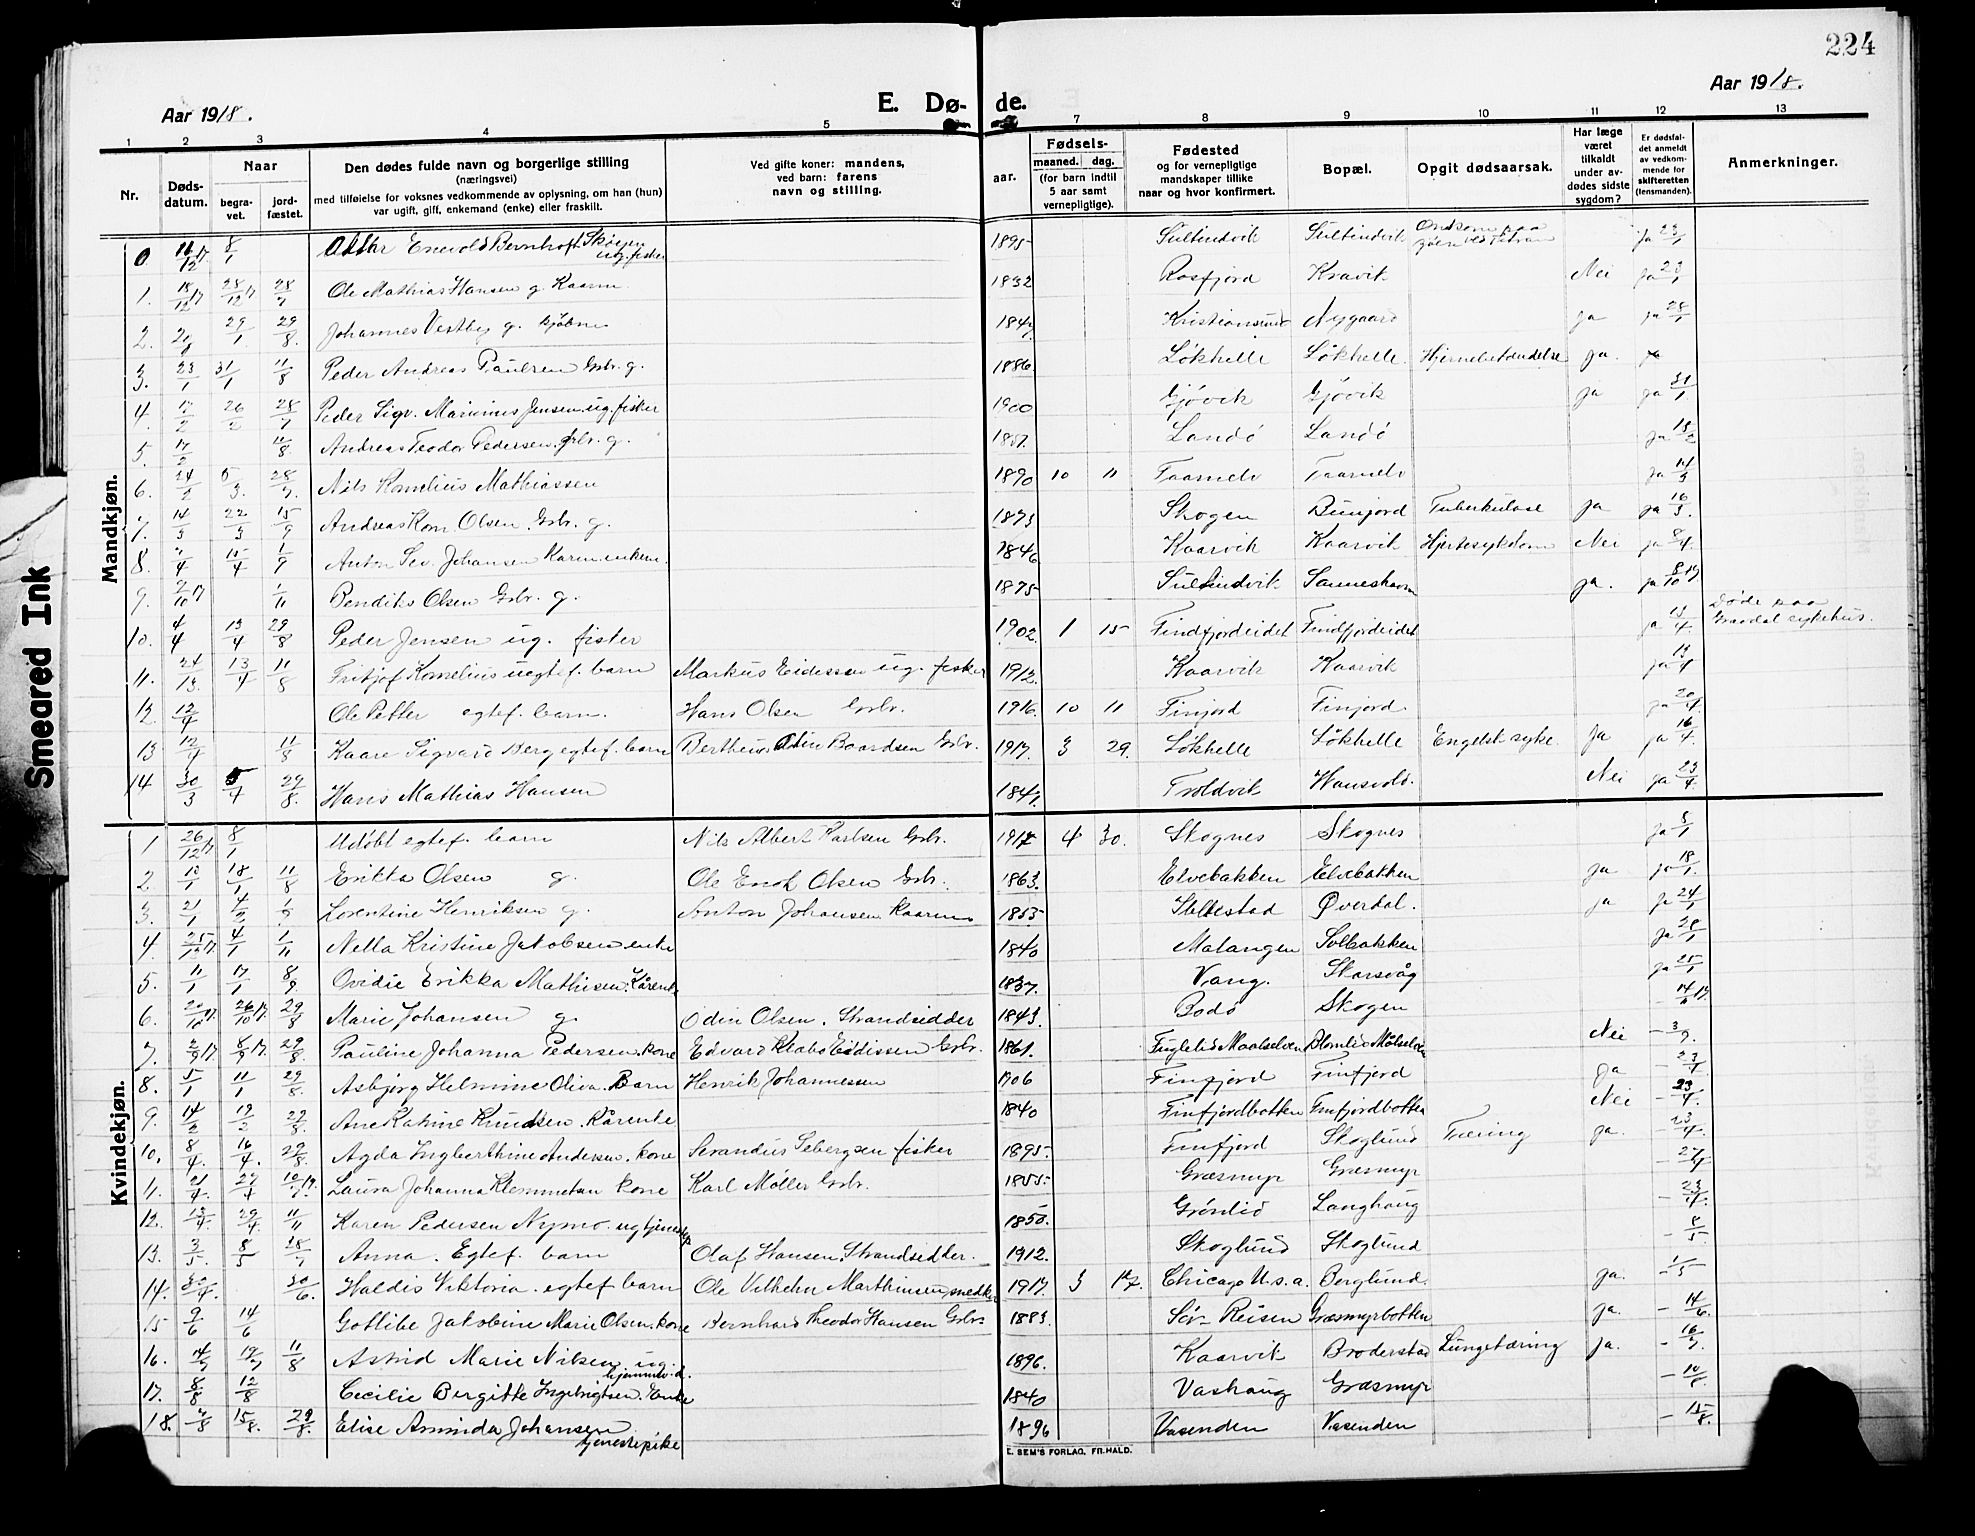 224
Aar 1918.
E. Dø-
de.
Aar 1918.
1 2 3 4 5 7 8 9 10 11 12 13
Nr.
Døds-datum.
Naar
begra-vet.
jord-fæstet.
Den dødes fulde navn og borgerlige stilling
(næringsvei)
med tilføielse for voksnes vedkommende av oplysning, om han (hun)
var ugift, gift, enkemand (enke) eller fraskilt.
Ved gifte koner: mandens,
ved barn: farens
navn og stilling.
Fødsels-
aar. maaned. dag.
(for barn indtil
5 aar samt
vernepligtige).
Fødested
og for vernepligtige
mandskaper tillike
naar og hvor konfirmert.
Bopæl.
Opgit dødsaarsak.
Har læge
været
tilkaldt
under av-
dødes sidste
sygdom?
Er dødsfal-
det anmeldt
av vedkom-
mende for
skifteretten
(lensmanden).
Anmerkninger.
Mandkjøn.
0 16/12 17 8/1 Enevold Bernhoft Skogen ug. fisker 1895 Sultindvik Sultindvik ja 23/1
1. 18/12 17 28/12 17 28/7 Ole Mathias Hansen g. Kaarm. 1832 Rosfjord Kravik Nei ja 23/1
2. 29/1 29/8. Johannes Vestby g. 1847 Kristiansund Nygaard ja ja 28/1
3. 23/1 31/1 11/8 Peder Andreas Paulsen Gbr. g. 1886 Løkhelle Løkhelle. Hjernebetændelse ja. ja
4. 26/2 28/7 Peder Sigv. Marinius Jensen ug. fisker 1900 Gjøvik Gjøvik ja ja 31/1
5. 17/2 Andreas Teodor Pedersen Gbr. g. Landø Landø ja 18/2
6. 24/2 5/3. 28/7. Nils Kornelius Mathiassen 1890 10 11 Taamelv Taamelv ja 14/3
7. 14/3 22/3 15/9 Andreas Korn. Olsen Gbr. g. 1873 Skogen Dunjord Tuberkulose ja ja 16/3.
8. 10/4 1/9 Anton Sev. Johansen Karm enkem. 1846 Kaarvik Kaarvik Hjertesykdom Nei ja
9. 2/10 17 1/11 Bendiks Olsen Gbr. g. 1875 Sultindvik ja. ja 8/10 17
10. 4/4 13/4 29/8 Peder Jensen ug. fisker 1902. 1 15 Findfjordeidet Findfjordeidet ja 13/4. Døde paa Gravdal sykehus.
11. 24/13. 13/4 11/8 Fritjof Kornelius uegtef. barn Markus Eidissen ug. fisker 1912. Kaarvik Kaarvik ja 13/4
12 12/4 Ole Petter egtef. barn. Hans Olsen Gbr. 1916. 10 11 Finjord Finjord. ja 20/4.
13 12/4 11/8 Kaare Sigvard Berg egtef. barn Bertheus Odin Baardsen Gbr. 1917. 3 29. Løkhelle Løkhelle Engelsk syke. Ja ja 16/4.
14 30/3 5/4 29/8. Hans Mathias Hansen 1847. Troldvik Hansvold. Nei ja 23/4
Kvindekjøn.
1 26/12 17 8/1 Udøbt egtef. barn Nils Albert Karlsen Gbr. 1917 4 30. Skognes Skognes ja 8/1
2. 10/1 18/1 11/8 Erikka Olsen g. Ole Enok Olsen Gbr. 1863. Elvebakken Elvebakken ja ja 18/1.
3. 21/1 4/2 1/9 Lorentine Henriksen g. Anton Johansen Kaarm 1853 Øverdal. ja ja 24/1
4. 25/12 17. 4/1 1/11 Netta Kristine Jakobsen enke 1840 Malangen Solbakken ja 28/1
5. 11/1 17/1 8/9. Ovidie Erikka Mathisen Kårenke 1837. Vang. Skarsvåg ja 25/1
6. 20/10 17. 26/10 17. 29/8 Marie Johansen g. Odin Olsen. Strandsidder 1843. Bodø Skogen
7. 2/9 17. 8/9 17. 29/8. Pauline Johanna Pedersen. kone Edvard Eidissen Gbr. 1861. Fuglelid Maalselven Blomlid Målselven Nei - 3/9.
8. 5/1 11/1 29/8. Asbjørg Helmine Oliva. Barn Henrik Johannessen 1906 Finfjord Finfjord ja
9. 14/2 19/2 29/8. Ane Katrine Knudsen. Kårenke 1840 Finfjordbotten Finfjordbotten Nei - 23/4.
10. 8/4. 16/4. 29/8. Agda Ingberthine Andersen. kone Serandius Sebergsen fisker 1895. Finfjord Skoglund Tæring ja. - 23/4.
11. 21/4. 27/4 Laura Johanna Klemmetsen kone Karl Møller Gbr. 1855. Græsmyr Græsmyr
12. 13/4. 29/4. 11/11 Karen Pedersen Nymo. ug tjenestep. 1850. Grønlid Langhaug - 23/4.
13. 3/5. 8/5 28/7 Anna. Egtef. barn Olaf Hansen Strandsidder. 1912. Skoglund Skoglund - 8/5.
14. 30/4. 30/6. Haldis Viktoria. egtef barn Ole Vilhelm Marthinsen snedker 1917. 3 17. Chicago U.s.a. Berglund. ja. - 1/5
15 9/6 14/6 Gotlibe Jakobine Marie Olsen. kone Bernhard Theodor Hansen Gbr. 1883. Sør-Reisen Græsmyrbotten ja. - 14/6.
16. 14/7 19/7 11/8 Astrid Marie Nilsen. ug. hjemmev. d. 1896. Kaarvik Broderstad Lungetæring ja. - 16/7.
17. 8/8 12/8 Cecilie Bergitte Ingebrigtsen. Enke 1840 Vashaug Græsmyr - 10/8.
18. 15/8. 29/8. Elise Aminda Johansen tjenestepike 1896 Vasenden Vasenden - 15/8.
E. SEM'S FORLAG, FR.HALD.
Smeared Ink